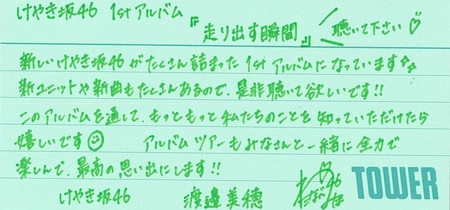 けやき坂46 1stアルバム
『走り出す瞬間』 聴いて下さい♡
新しいけやき坂46がたくさん詰まった1stアルバムになっています
新ユニットや新曲もたくさんあるので、是非聴いて欲しいです!!
このアルバムを通して、もっともっと私たちのことを知っていただけたら
嬉しいです☺ アルバムツアーもみなさんと一緒に全力で
楽しんで、最高の思い出にします!!
けやき坂46 渡邉美穂
TOWER